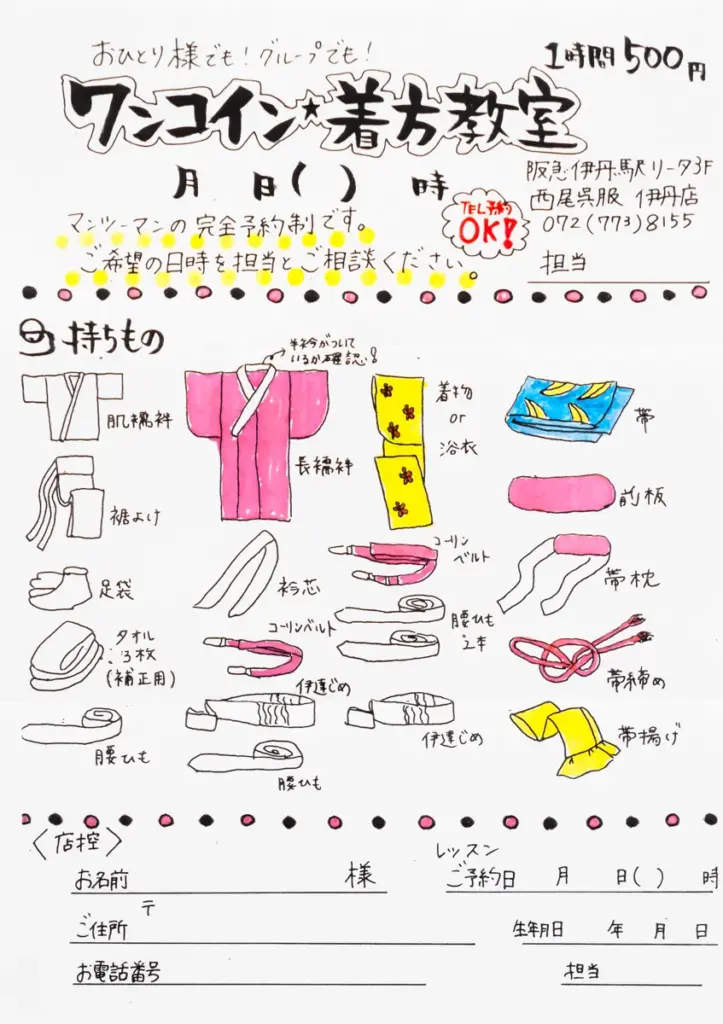 おひとり様でも！グループでも！
1時間500円
ワンコイン★着方教室
月　日（　）　時
阪急伊丹駅リータ3F
西尾呉服 伊丹店
072(773)8155
TEL予約
OK!
担当
マンツーマンの完全予約制です。
ご希望の日時を担当とご相談ください。
持ちもの
半衿がついて
いるか確認！
肌襦袢
長襦袢
着物
or
浴衣
帯
裾よけ
前板
足袋
衿芯
コーリン
ベルト
帯枕
タオル
3枚
(補正用)
コーリンベルト
腰ひも
2本
帯締め
伊達じめ
伊達じめ
帯揚げ
腰ひも
腰ひも
〈店控〉
お名前　様
レッスン
ご予約日　月　日（　）　時
〒
ご住所
生年月日　年　月　日
お電話番号
担当